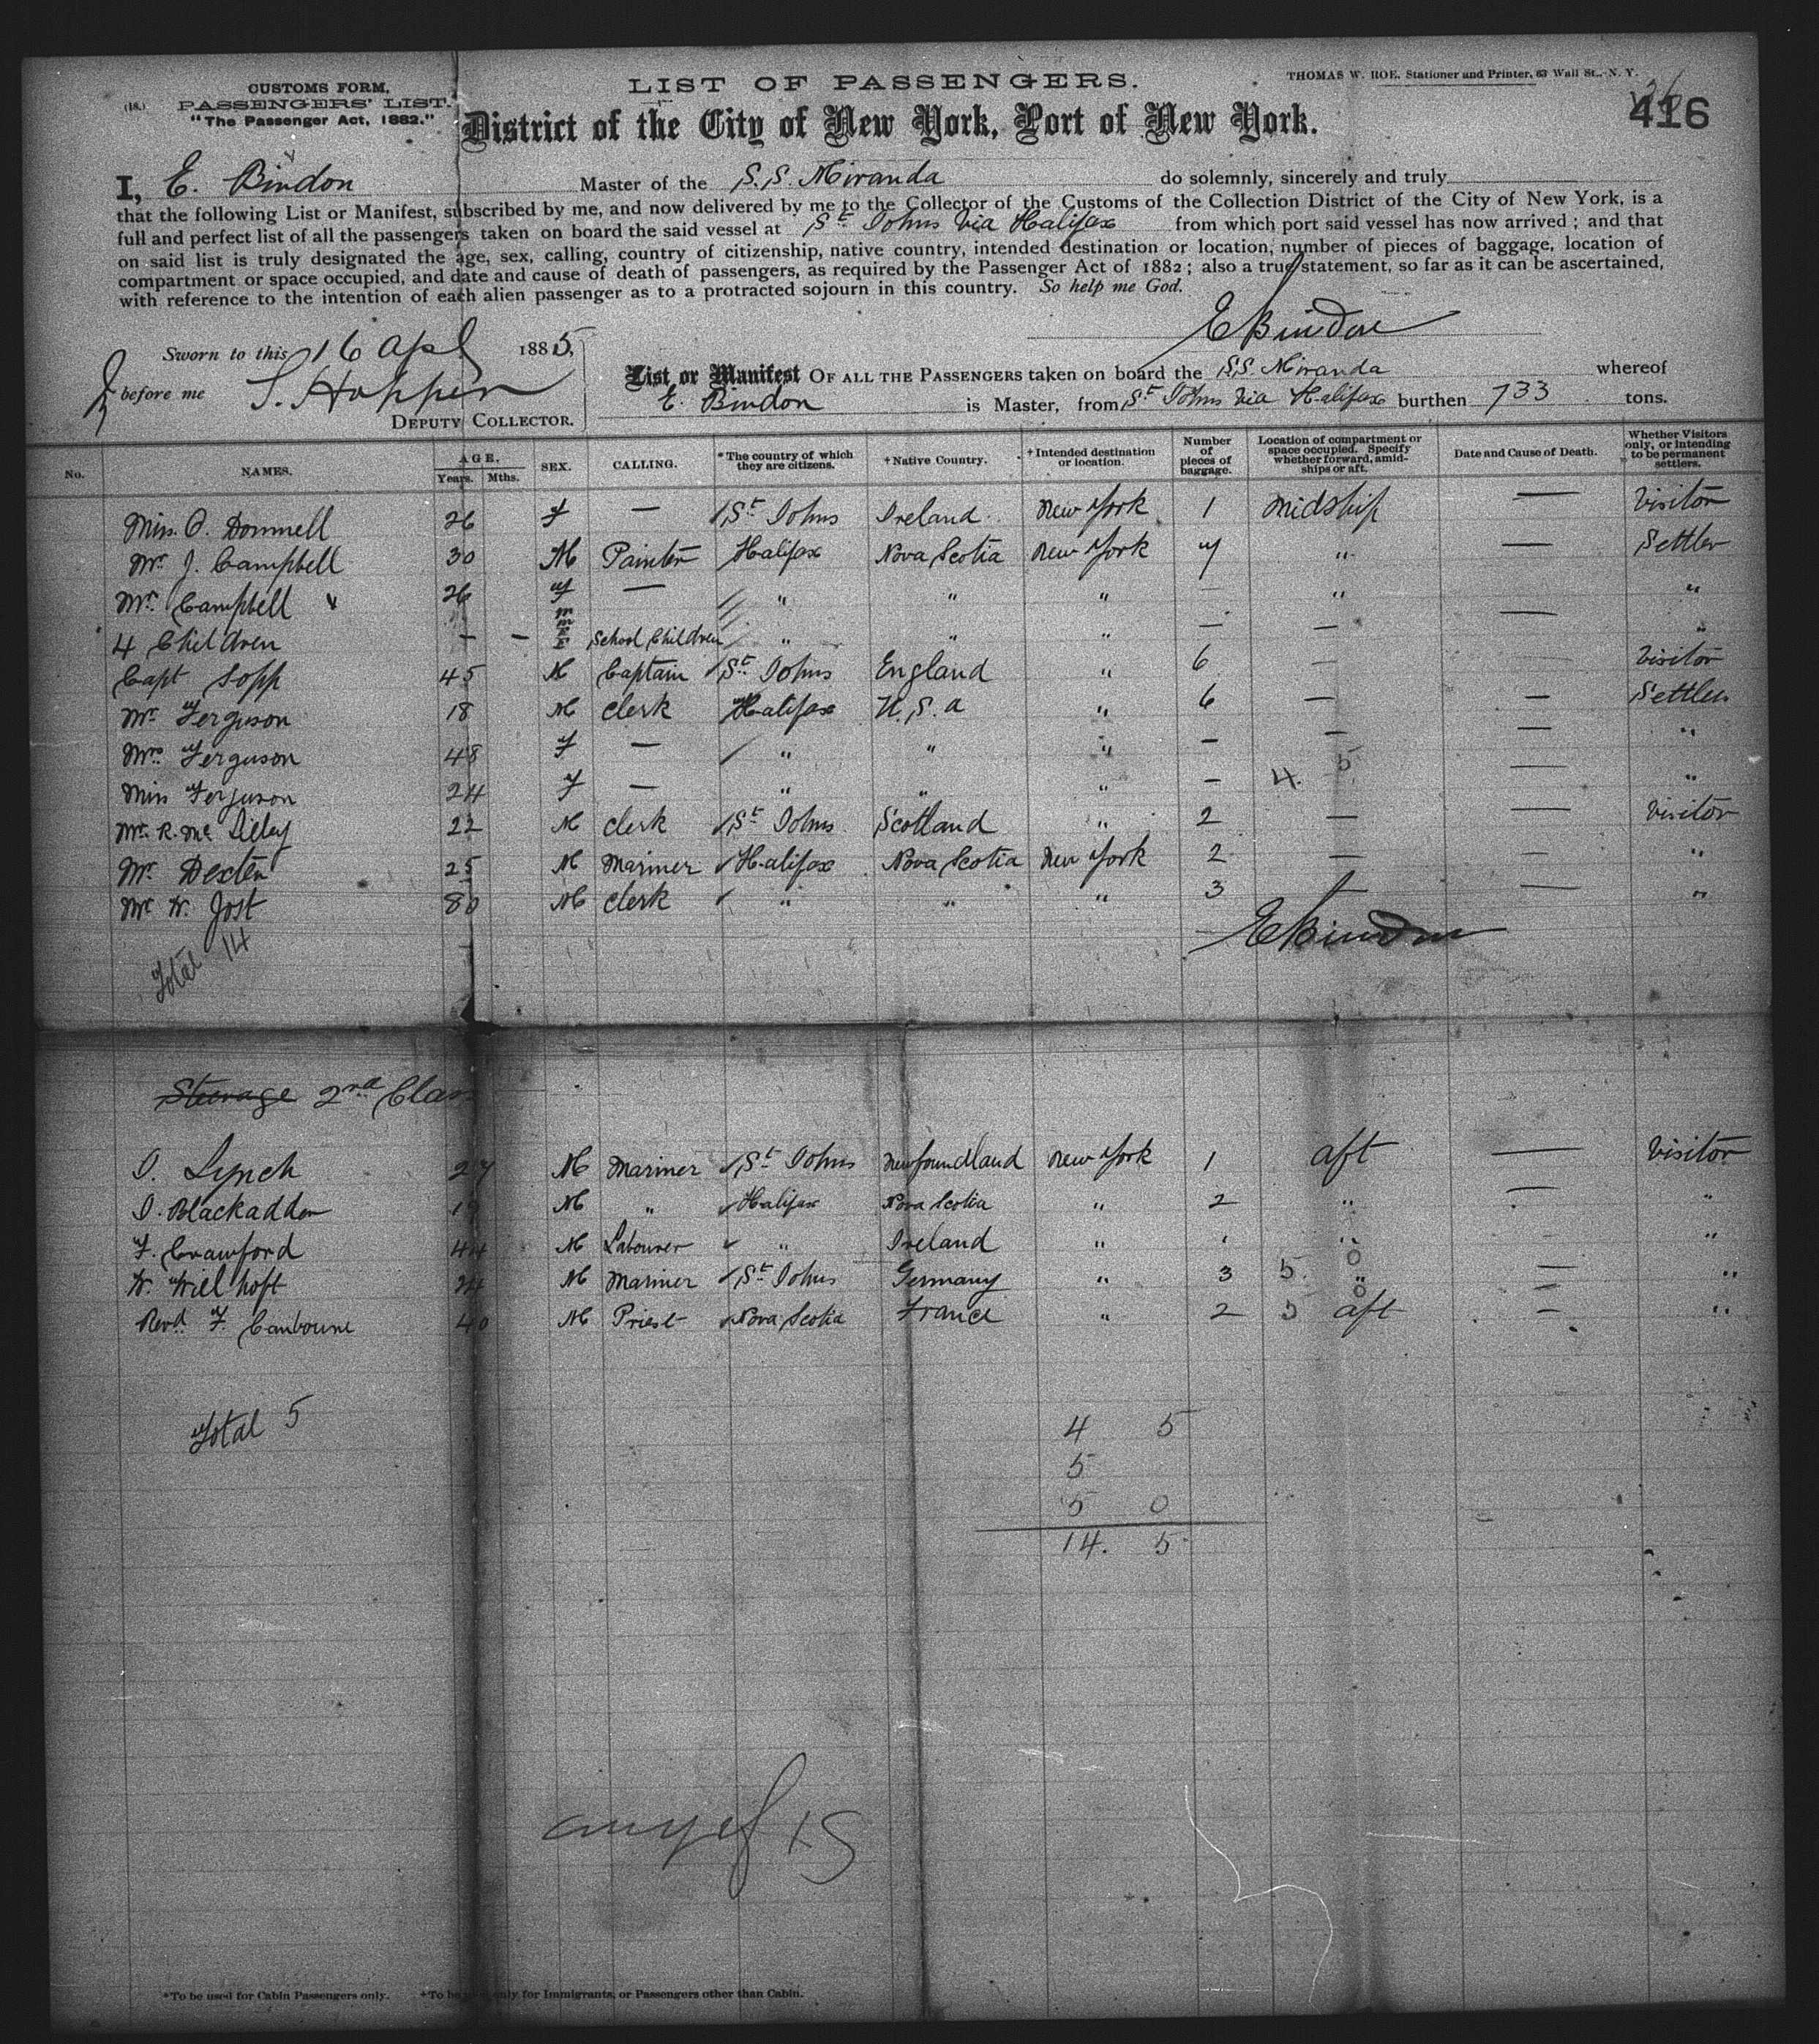 CUSTOMS FORM,
(18.) PASSENGERS' LIST.
"The Passenger Act, 1882."
LIST OF PASSENGERS.
THOMAS W. ROE, Stationer and Printer, 63 Wall St., N. Y.
416
District of the City of New York, Port of New York.
I, E. Bindon Master of the S.S. Miranda do solemnly, sincerely and truly
that the following List or Manifest, subscribed by me, and now delivered by me to the Collector of the Customs of the Collection District of the City of New York, is a
full and perfect list of all the passengers taken on board the said vessel at St Johns via Halifax from which port said vessel has now arrived; and that
on said list is truly designated the age, sex, calling, country of citizenship, native country, intended destination or location, number of pieces of baggage, location of
compartment or space occupied, and date and cause of death of passengers, as required by the Passenger Act of 1882; also a true statement, so far as it can be ascertained,
with reference to the intention of each alien passenger as to a protracted sojourn in this country. So help me God.
E Bindon
Sworn to this 16 Apl 1885,
before me S. Hopper
DEPUTY COLLECTOR.
List or Manifest OF ALL THE PASSENGERS taken on board the S.S. Miranda whereof
E. Bindon is Master, from St Johns via Halifax burthen 733 tons.
No. NAMES. AGE. Years. Mths. SEX. CALLING. *The country of which they are citizens. †Native Country. †Intended destination or location. Number of pieces of baggage. Location of compartment or space occupied. Specify whether forward, amidships or aft. Date and Cause of Death. Whether Visitors only, or intending to be permanent settlers.
Miss O. Donnell 26 F — St Johns Ireland New York 1 midship — Visitor
Mr J. Campbell 30 M Painter Halifax Nova Scotia New York 7 " — Settler
Mrs Campbell 26 F — " " " — " "
4 Children — — M M F F School Children " " " — — — "
Capt Sopp 45 M Captain St Johns England " 6 — Visitor
Mr Ferguson 18 M Clerk Halifax U.S.a " 6 — — Settler
Mrs Ferguson 48 F — " " " — — — "
Miss Ferguson 24 F — " " " — 4. 5 — "
Mr. R. Mc 22 M Clerk St Johns Scotland " 2 — — Visitor
Mr Dexter 25 M Mariner Halifax Nova Scotia New York 2 — — "
Mr W. Jost 80 M Clerk " " " 3 — — "
E Bindon
Total 14
Steerage 2nd Class
J. Lynch 27 M Mariner St Johns Newfoundland New York 1 aft — Visitor
J. Blackadder 19 M " Halifax Nova Scotia " 2 " — "
F. Crawford 44 M Labourer " Ireland " " " — "
W. Willhoft 24 M Mariner St Johns Germany " 3 5. 0 " — "
Revd F. Canbourne 40 M Priest Nova Scotia France " 2 5 0 aft — "
Total 5
4 5
5
5 0
14. 5
*To be used for Cabin Passengers only. †To be used only for Immigrants, or Passengers other than Cabin.